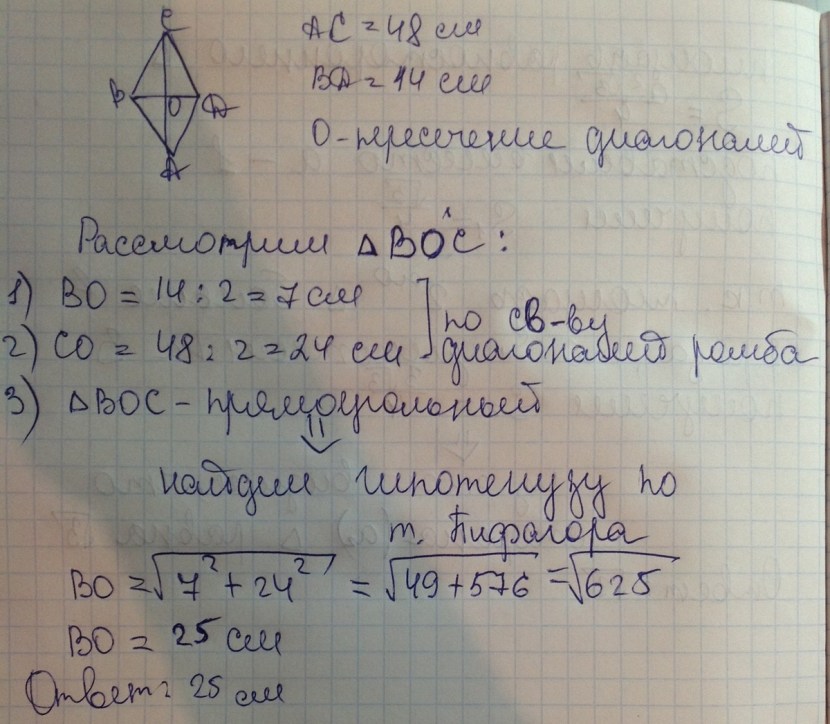 C
AC = 48 см
B
O
Д
BД = 14 см
A
O - пересечение диагоналей
Рассмотрим △BOC :
1) BO = 14 : 2 = 7 см
2) CO = 48 : 2 = 24 см
по св-ву
диагоналей ромба
3) △BOC - прямоугольный
⇓
найдем гипотенузу по
т. Пифагора
BO = √7² + 24² = √49 + 576 = √625
BO = 25 см
Ответ: 25 см